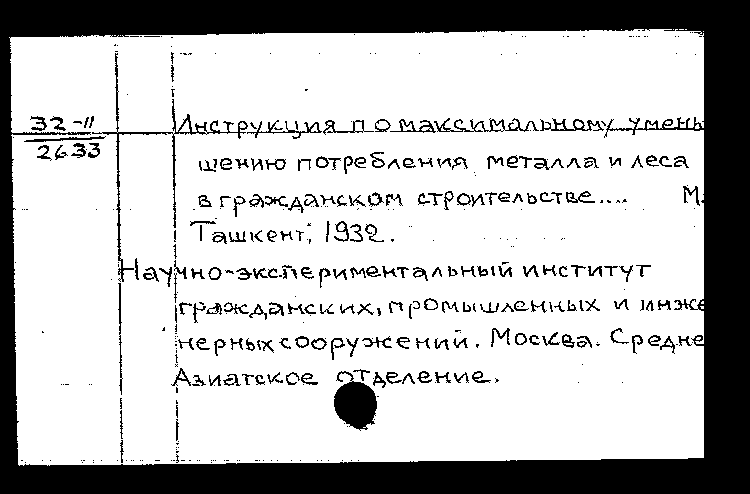 32-11
2633
Инструкция по максимальному умень
шению потребления металла и леса
в гражданском строительстве.... М.
Ташкент, 1932.
Научно-экспериментальный институт
гражданских, промышленных и инже
нерных сооружений. Москва. Средне
Азиатское отделение.